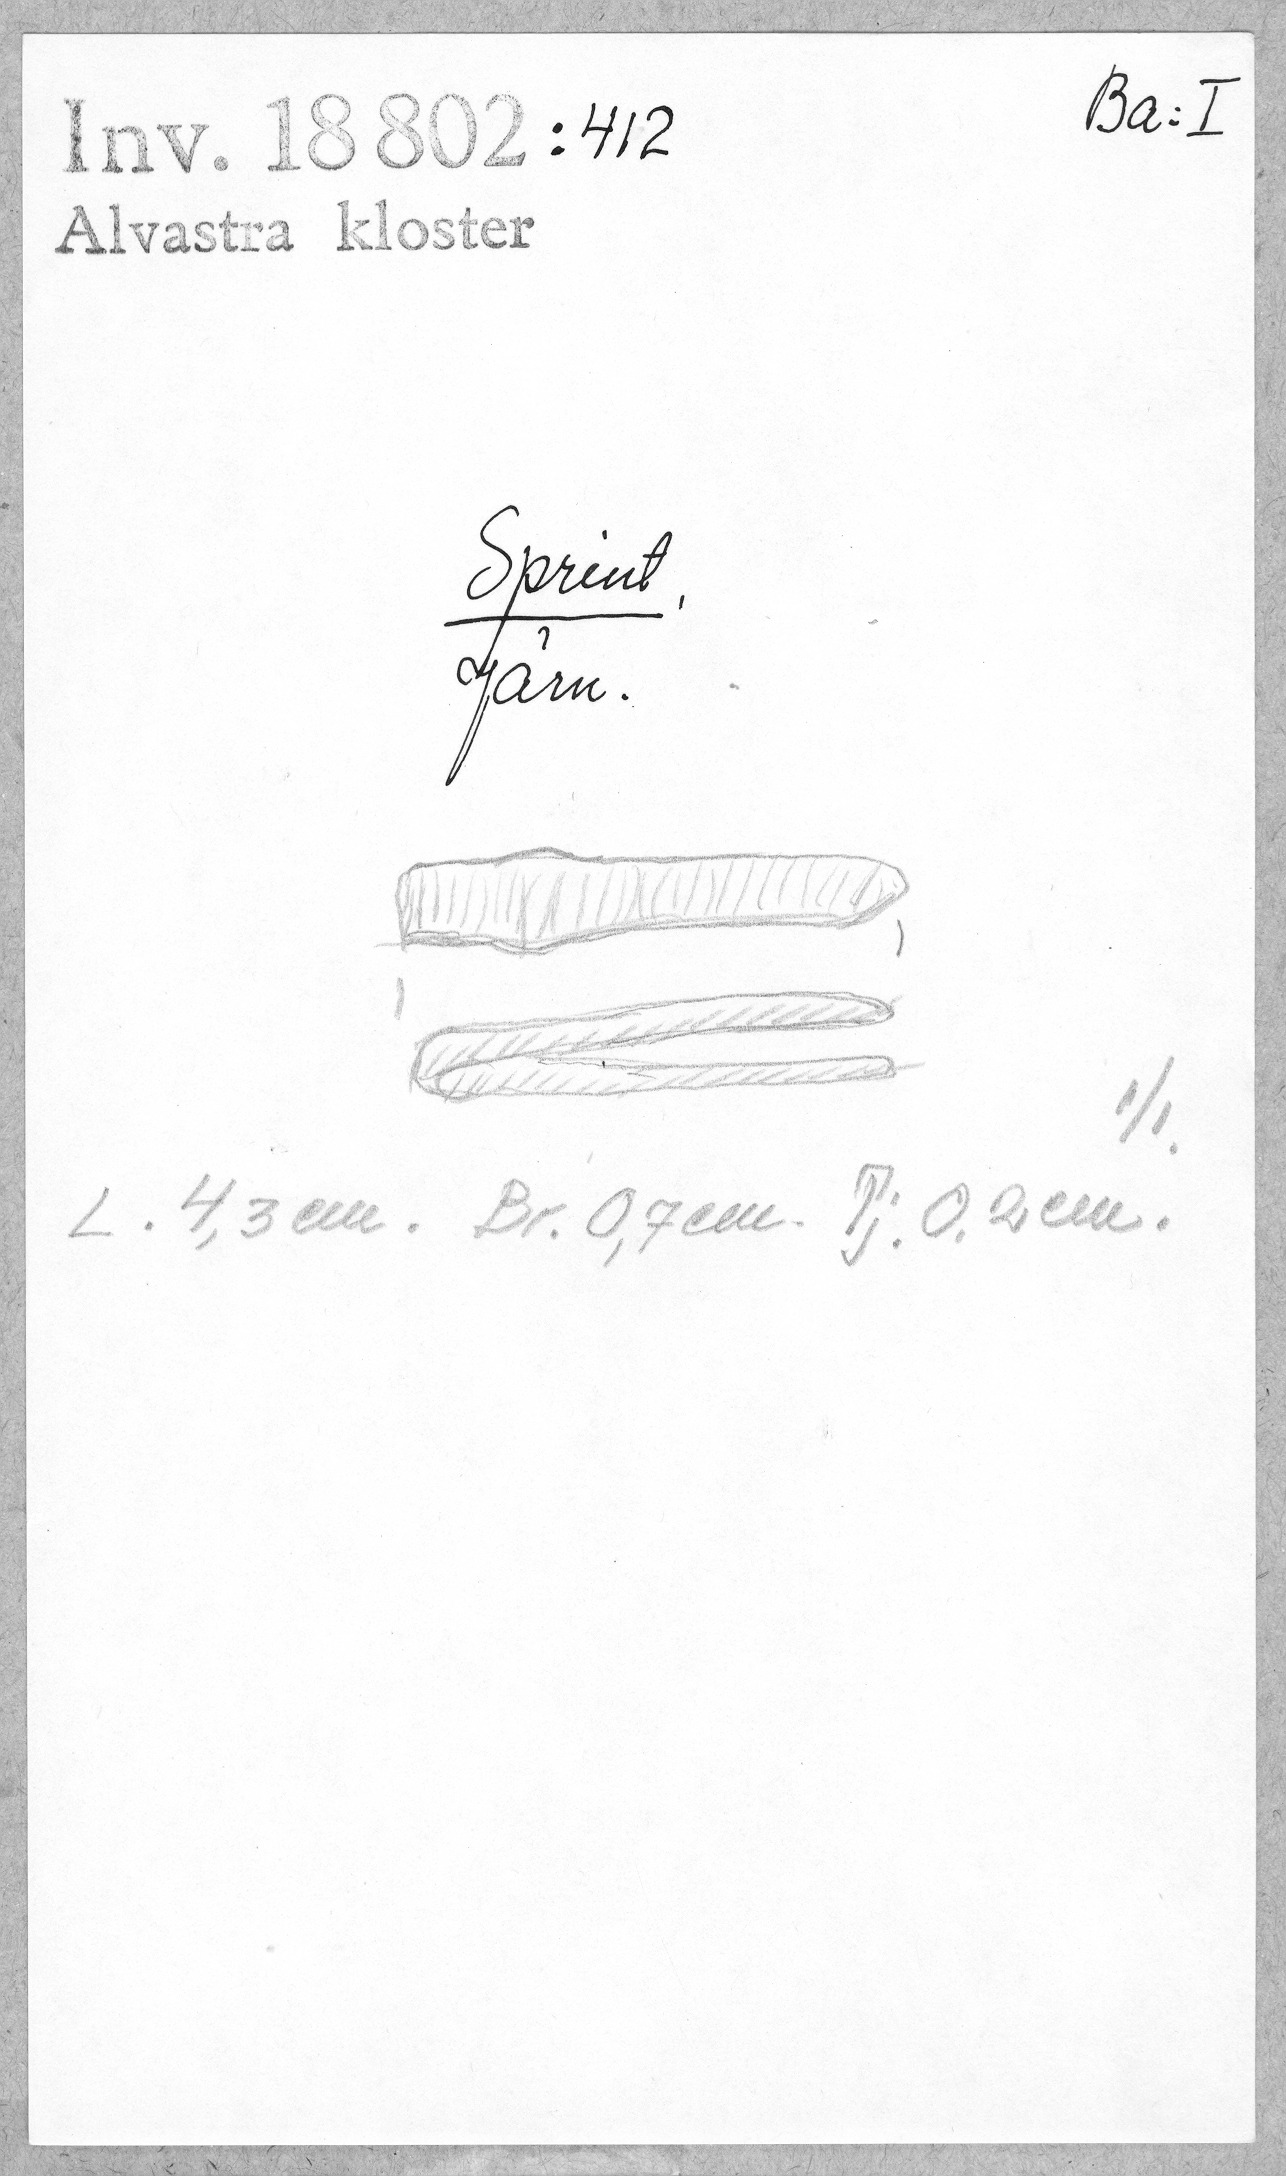 Inv. 18802 :412
Ba: I
Alvastra kloster
Sprint,
Järn.
1/1.
L. 4,3 cm. Br. 0,7 cm. Tj. 0,2 cm.